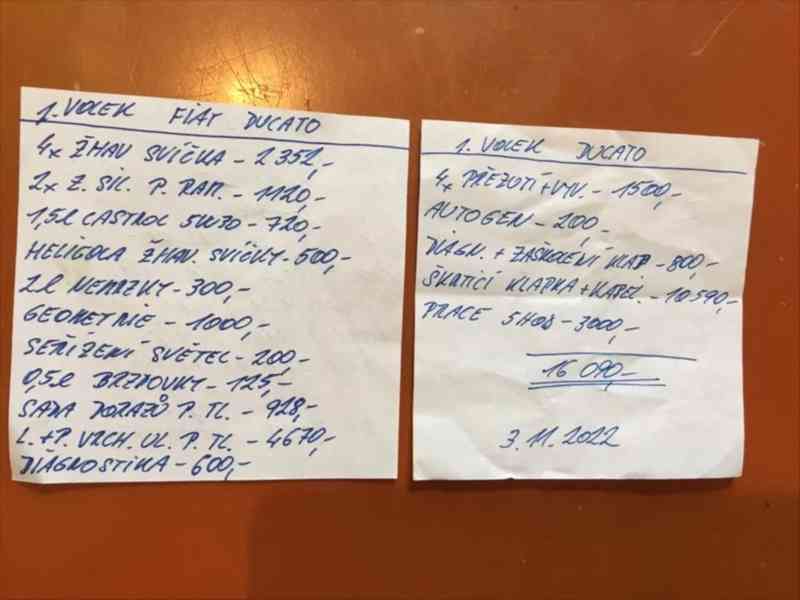 1. VOLEK FIAT DUCATO
4x ŽHAV SVÍČKA - 2352,-
2x Z. SIL. P. RAM. - 1120,-
1,5l CASTROL 5W30 - 720,-
HELIGOLA ŽHAV. SVÍČKY - 500,-
2l NEMRZKY - 300,-
GEOMETRIE - 1000,-
SEŘÍZENÍ SVĚTEL - 200,-
0,5l BRZDOVKY - 125,-
SADA DORAZŮ P. TL. - 928,-
L. + P. VRCH. UL. P. TL. - 4670,-
DIAGNOSTIKA - 600,-
1. VOLEK DUCATO
4x PŘEZUTÍ + VYV. - 1500,-
AUTOGEN - 200,-
DIAGN. + ZAŠKOLENÍ KLAP. - 800,-
ŠKRTÍCÍ KLAPKA + KABEL. - 10590,-
PRÁCE 5HOD - 3000,-
16 090,-
3.11.2022